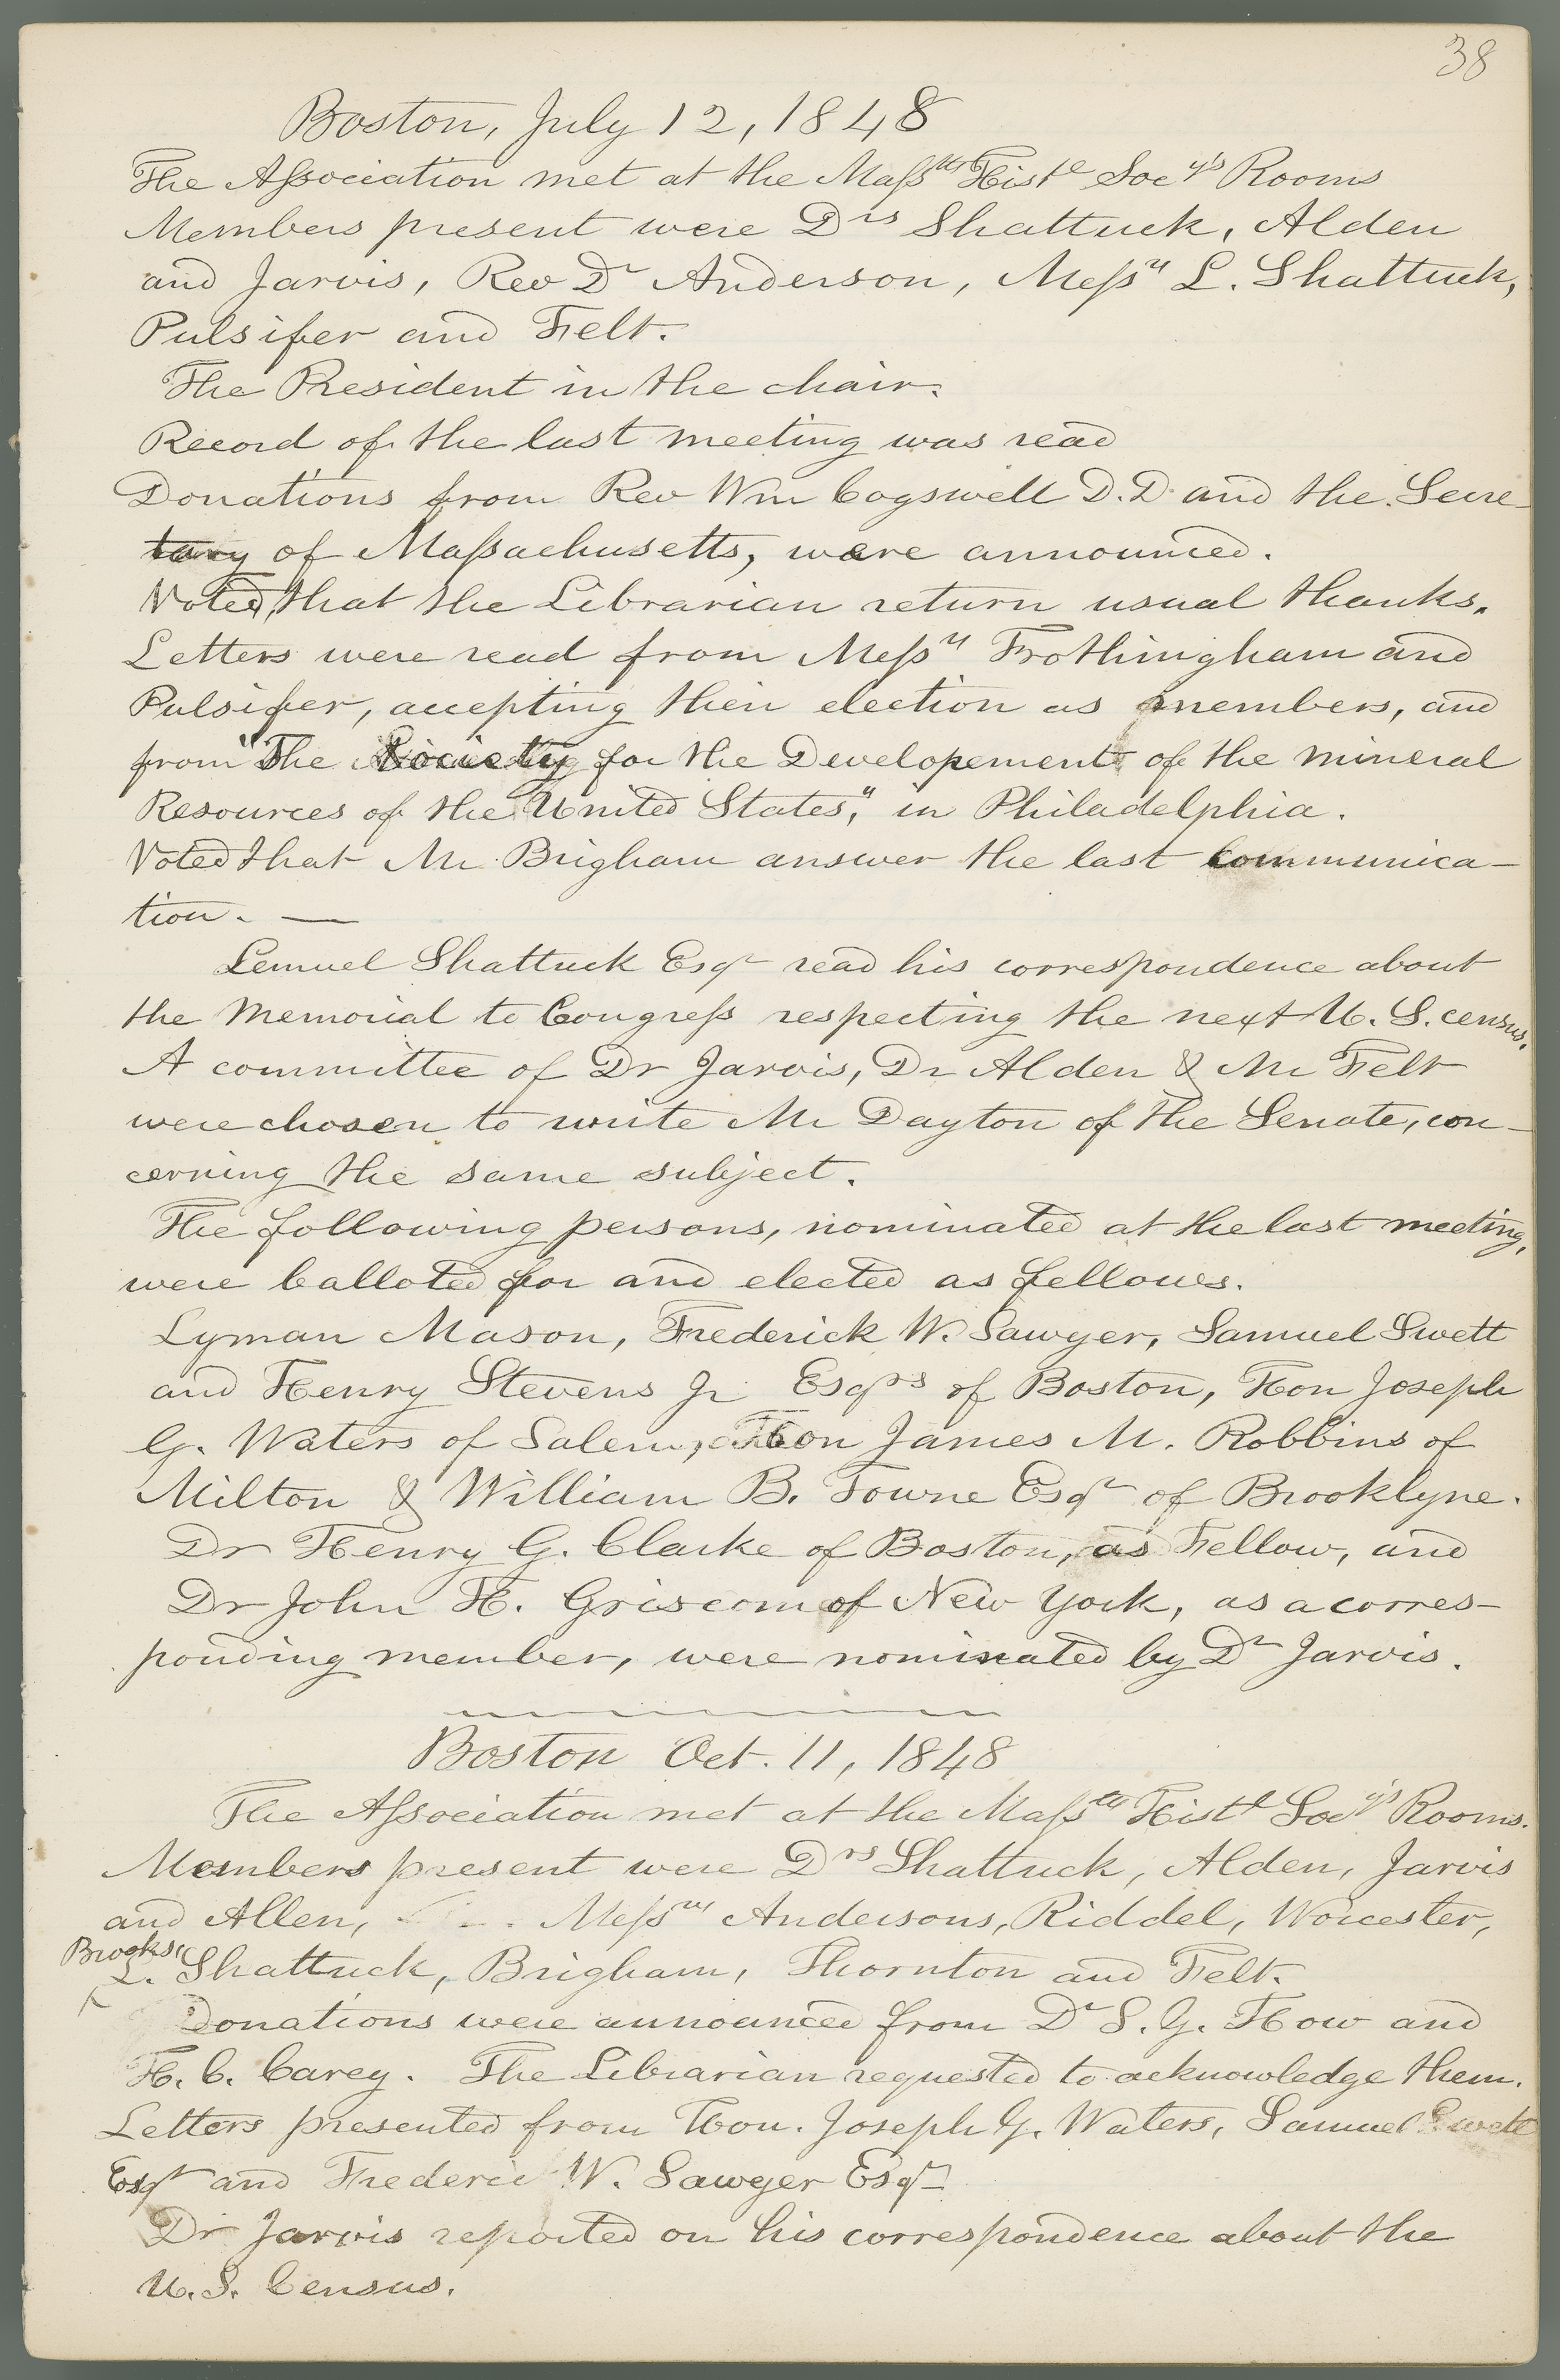 38
Boston, July 12, 1848
The Association met at the Mass.tts Hist.l Soc.y's Rooms
Members present were Drs Shattuck, Alden
and Jarvis, Rev Dr Anderson, Messrs L. Shattuck,
Pulsifer and Felt.
The President in the chair.
Record of the last meeting was read
Donations from Rev Wm Cogswell D.D. and the Secre-
tary of Massachusetts, were announced.
Voted, that the Librarian return usual thanks.
Letters were read from Messrs Frothingham and
Pulsifer, accepting their election as members, and
from "The Society for the Developement of the mineral
Resources of the United States," in Philadelphia.
Voted that Mr Brigham answer the last communica-
tion. —
Lemuel Shattuck Esqr read his correspondence about
the Memorial to Congress respecting the next U. S. census.
A committee of Dr Jarvis, Dr Alden & Mr Felt
were chosen to write Mr Dayton of the Senate, con-
cerning the same subject.
The following persons, nominated at the last meeting,
were balloted for and elected as fellows.
Lyman Mason, Frederick W. Sawyer, Samuel Swett
and Henry Stevens Jr Esqrs of Boston, Hon Joseph
G. Waters of Salem, Hon James M. Robbins of
Milton & William B. Towne Esqr of Brooklyne.
Dr Henry G. Clarke of Boston, as Fellow, and
Dr John H. Griscom of New York, as a corres-
ponding member, were nominated by Dr Jarvis.
Boston Oct. 11, 1848
The Association met at the Masstts Histl Socy's Rooms.
Members present were Drs Shattuck, Alden, Jarvis
and Allen, Messrs Andersons, Riddel, Worcester,
Brooks,
L. Shattuck, Brigham, Thornton and Felt.
Donations were announced from Dr S. G. How and
H. C. Carey. The Librarian requested to acknowledge them.
Letters presented from Hon. Joseph G. Waters, Samuel Swett
Esqr and Frederic W. Sawyer Esqr
Dr Jarvis reported on his correspondence about the
U. S. Census.